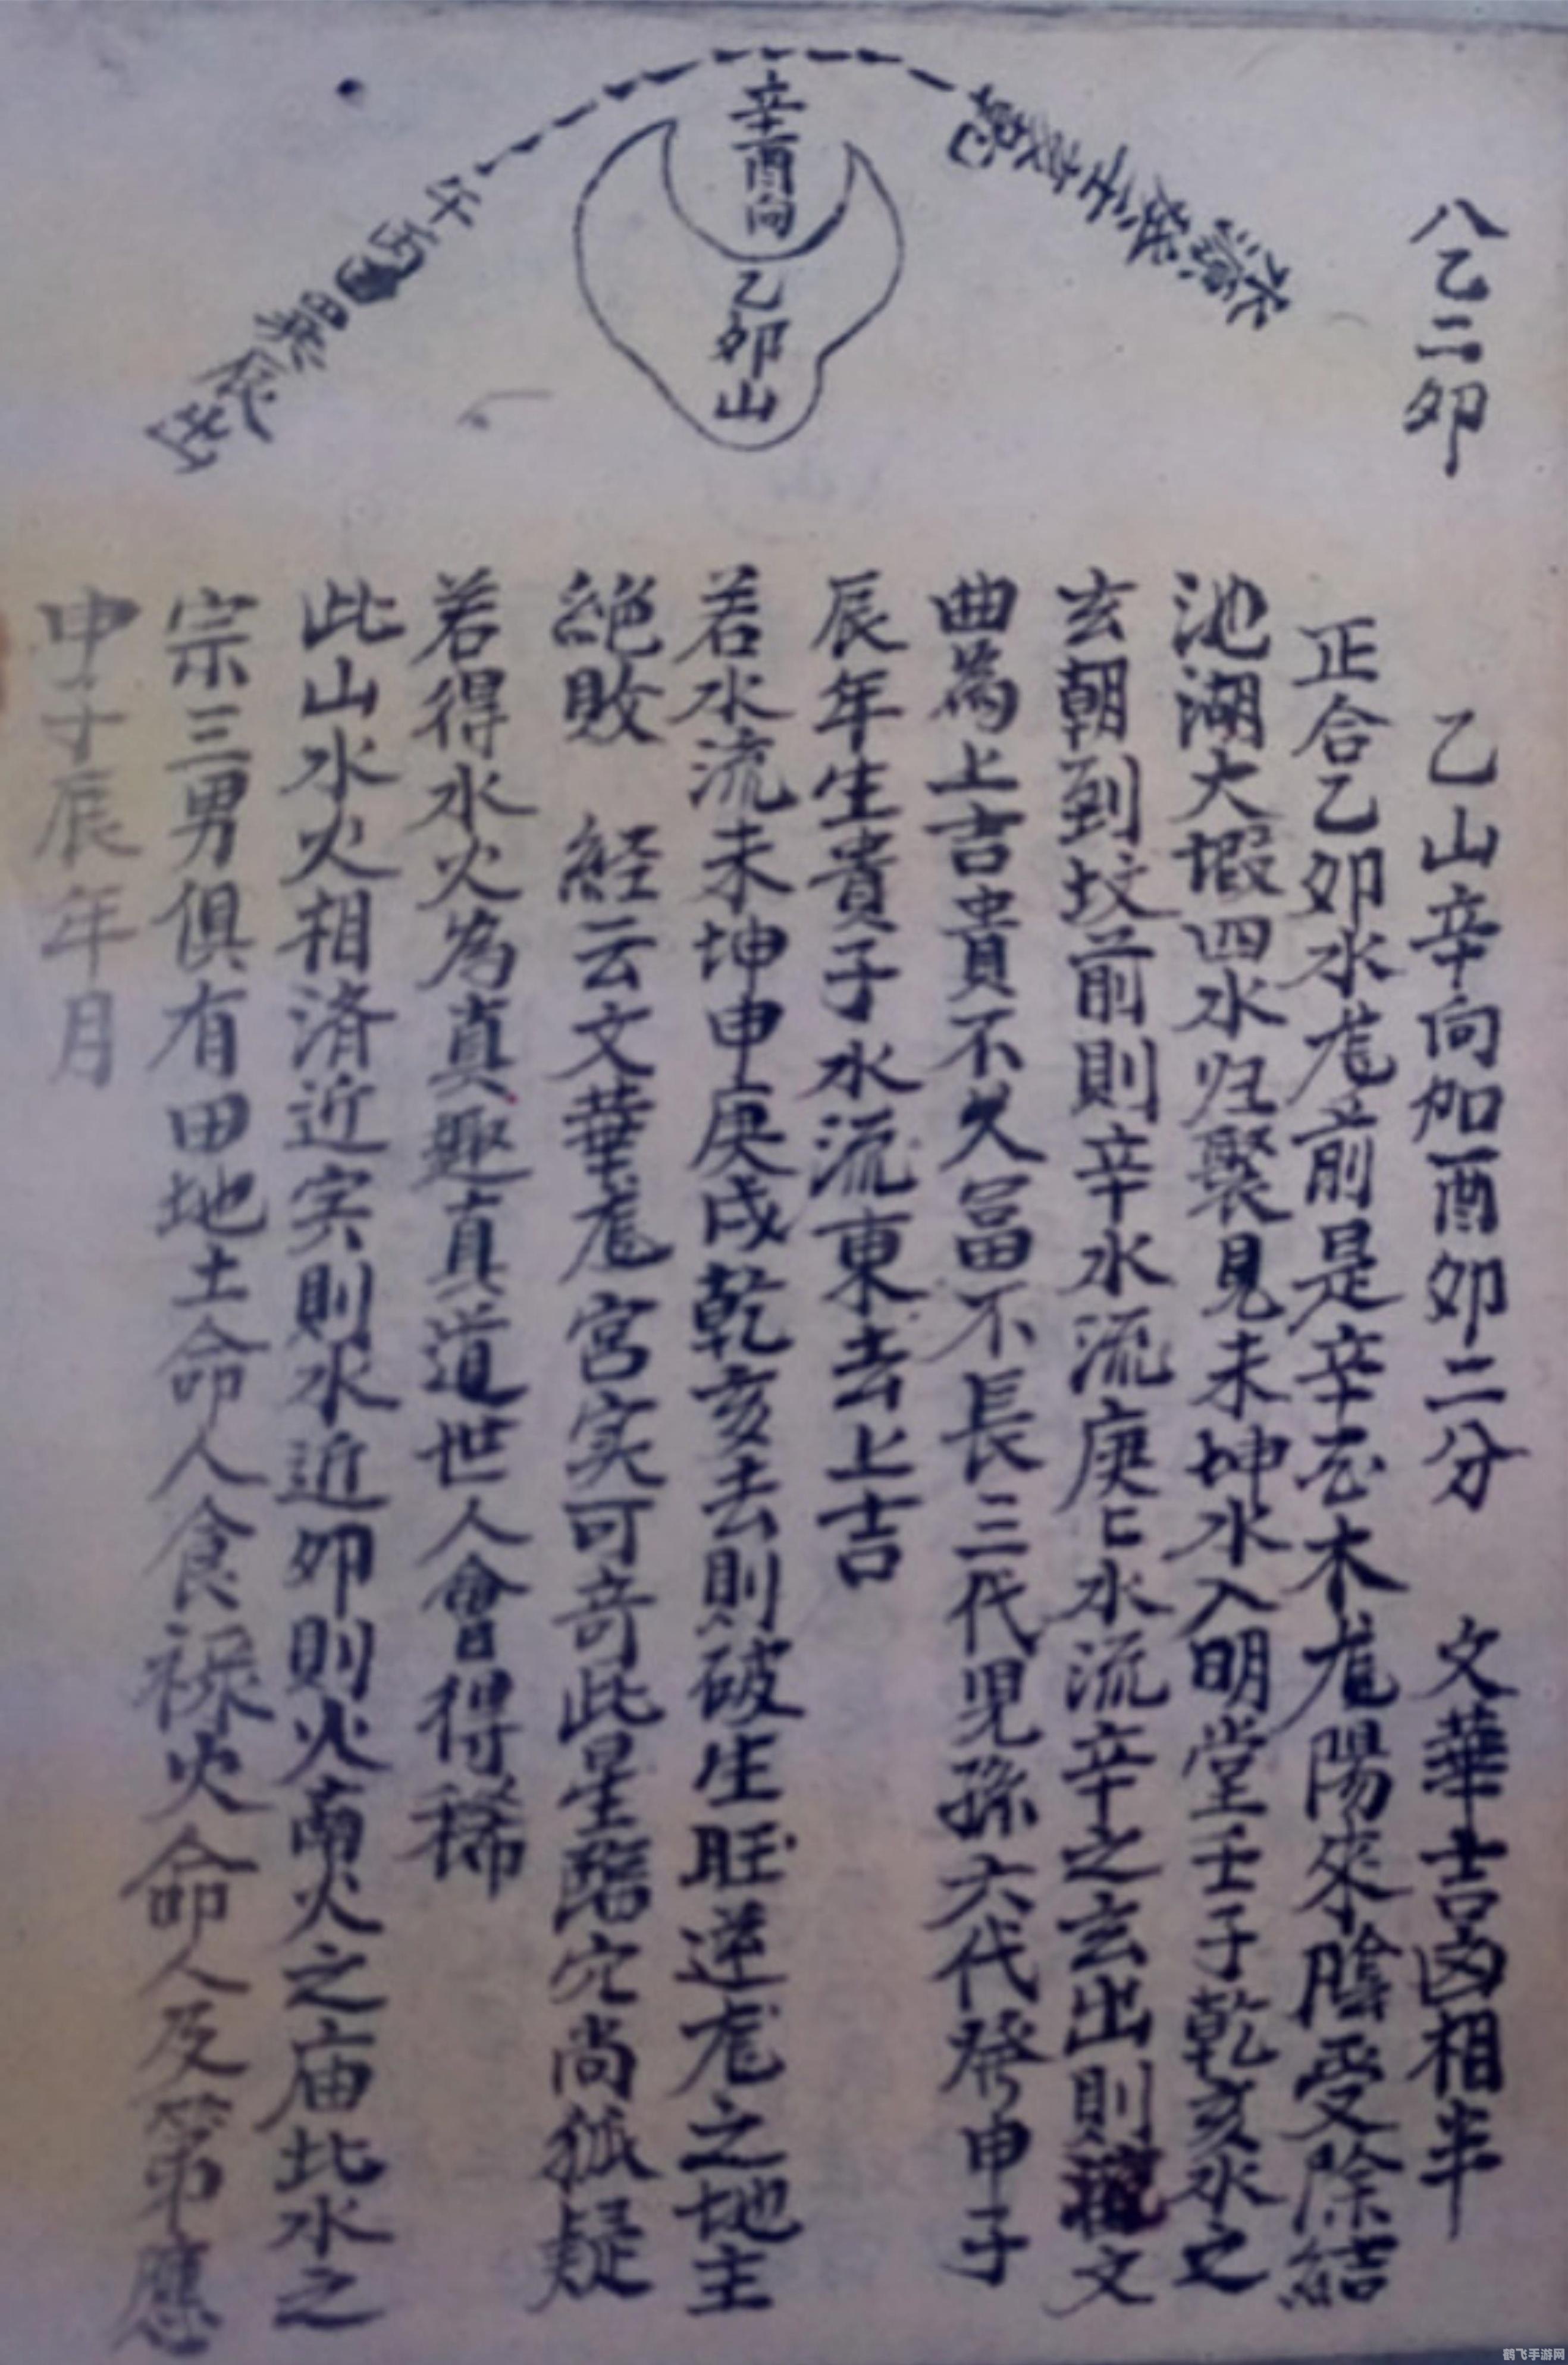 八乙二卯
辛酉向
乙卯山
水源癸子壬亥乾
午丙巽出
乙山辛向加酉卯二分 文華吉凶相半
正合乙卯水龙前是辛去木龙陽來陰受除結
池湖大塅四水归聚見未坤水入明堂壬子乾亥水之
玄朝到坟前則辛水流庚匕水流辛之玄出則文
曲為上吉貴不久富不長三代児孫六代發申子
辰年生貴子水流東去上吉
若水流未坤申庚戌乾亥去則破生旺逆龙之地主
絕敗 経云文華龙宮实可奇此星臨穴尚狐疑
若得水火為真趣真道世人會得稀
此山水火相済近寅則水近卯則火南火之庙北水之
宗三男俱有田地土命人食禄火命人及第應
申子辰年月
鹤飞手游网